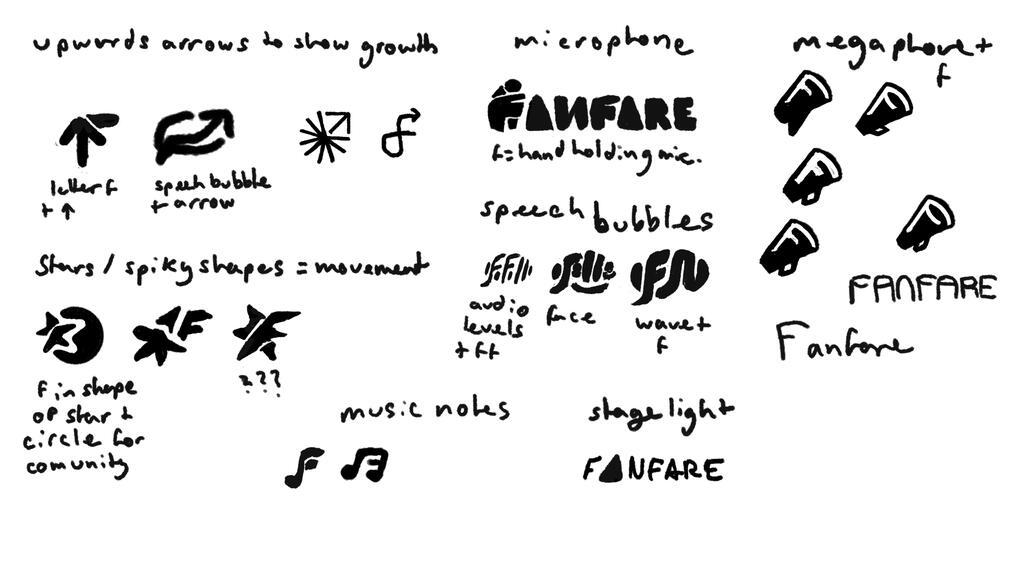 upwards arrows to show growth
letter f
+ ↑
speech bubble
+ arrow
microphone
FANFARE
f = hand holding mic.
megaphone +
f
speech bubbles
audio
levels
+ ff
face
wave +
f
Stars / spiky shapes = movement
F in shape
of star +
circle for
comunity
???
FANFARE
Fanfare
music notes
stage light
FANFARE